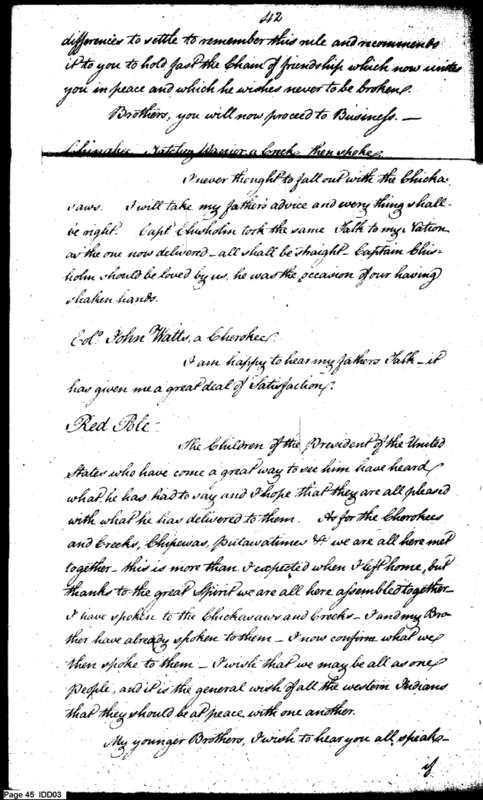 42
differences to settle to remember this rule and recommends
it to you to hold fast the Chain of friendship which now unites
you in peace and which he wishes never to be broken.
Brothers, you will now proceed to Business. —
Warrior, a Creek then spoke
I never thought to fall out with the Chicka
saws. I will take my fathers advice and every thing shall
be right. Capt Chisholm took the same Talk to my Nation
as the one now delivered – all shall be straight – Captain Chis-
holm should be loved by us, he was the occasion of our having
shaken hands.
Colo. John Watts, a Cherokee.
I am happy to hear my fathers Talk – it
has given me a great deal of Satisfaction.
Red Pole.
The Children of the President of the United
States who have come a great way to see him have heard
what he has had to say and I hope that they are all pleased
with what he has delivered to them. As for the Cherokees
and Creeks, Chipewas, Putawatimes &c we are all here met
together – this is more than I expected when I left home, but
thanks to the great Spirit we are all here assembled together –
I have spoken to the Chickasaws and Creeks – I and my Bro
ther have already spoken to them – I now confirm what we
then spoke to them – I wish that we may be all as one
People, and it is the general wish of all the western Indians
that they should be at peace with one another.
My younger Brothers, I wish to hear you all speak –
if
Page 45 IDD03